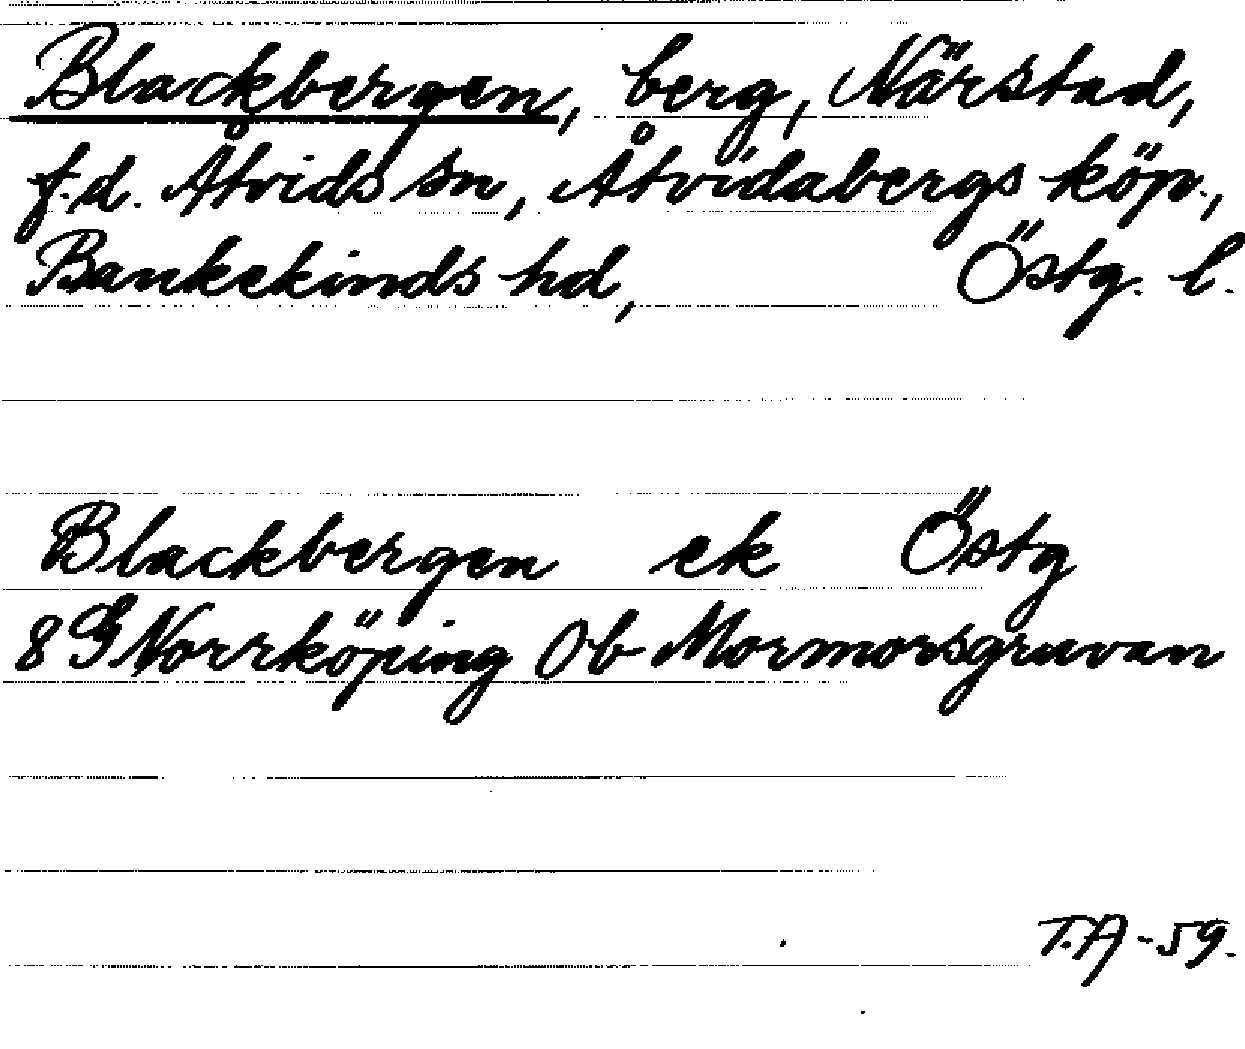 Blackbergen, berg, Närstad,
f.d. Åtvids sn, Åtvidabergs köp.,
Bankekinds hd, Östg. l.
Blackbergen ek Östg
8 G Norrköping Ob Mormorsgruvan
T.A-59.